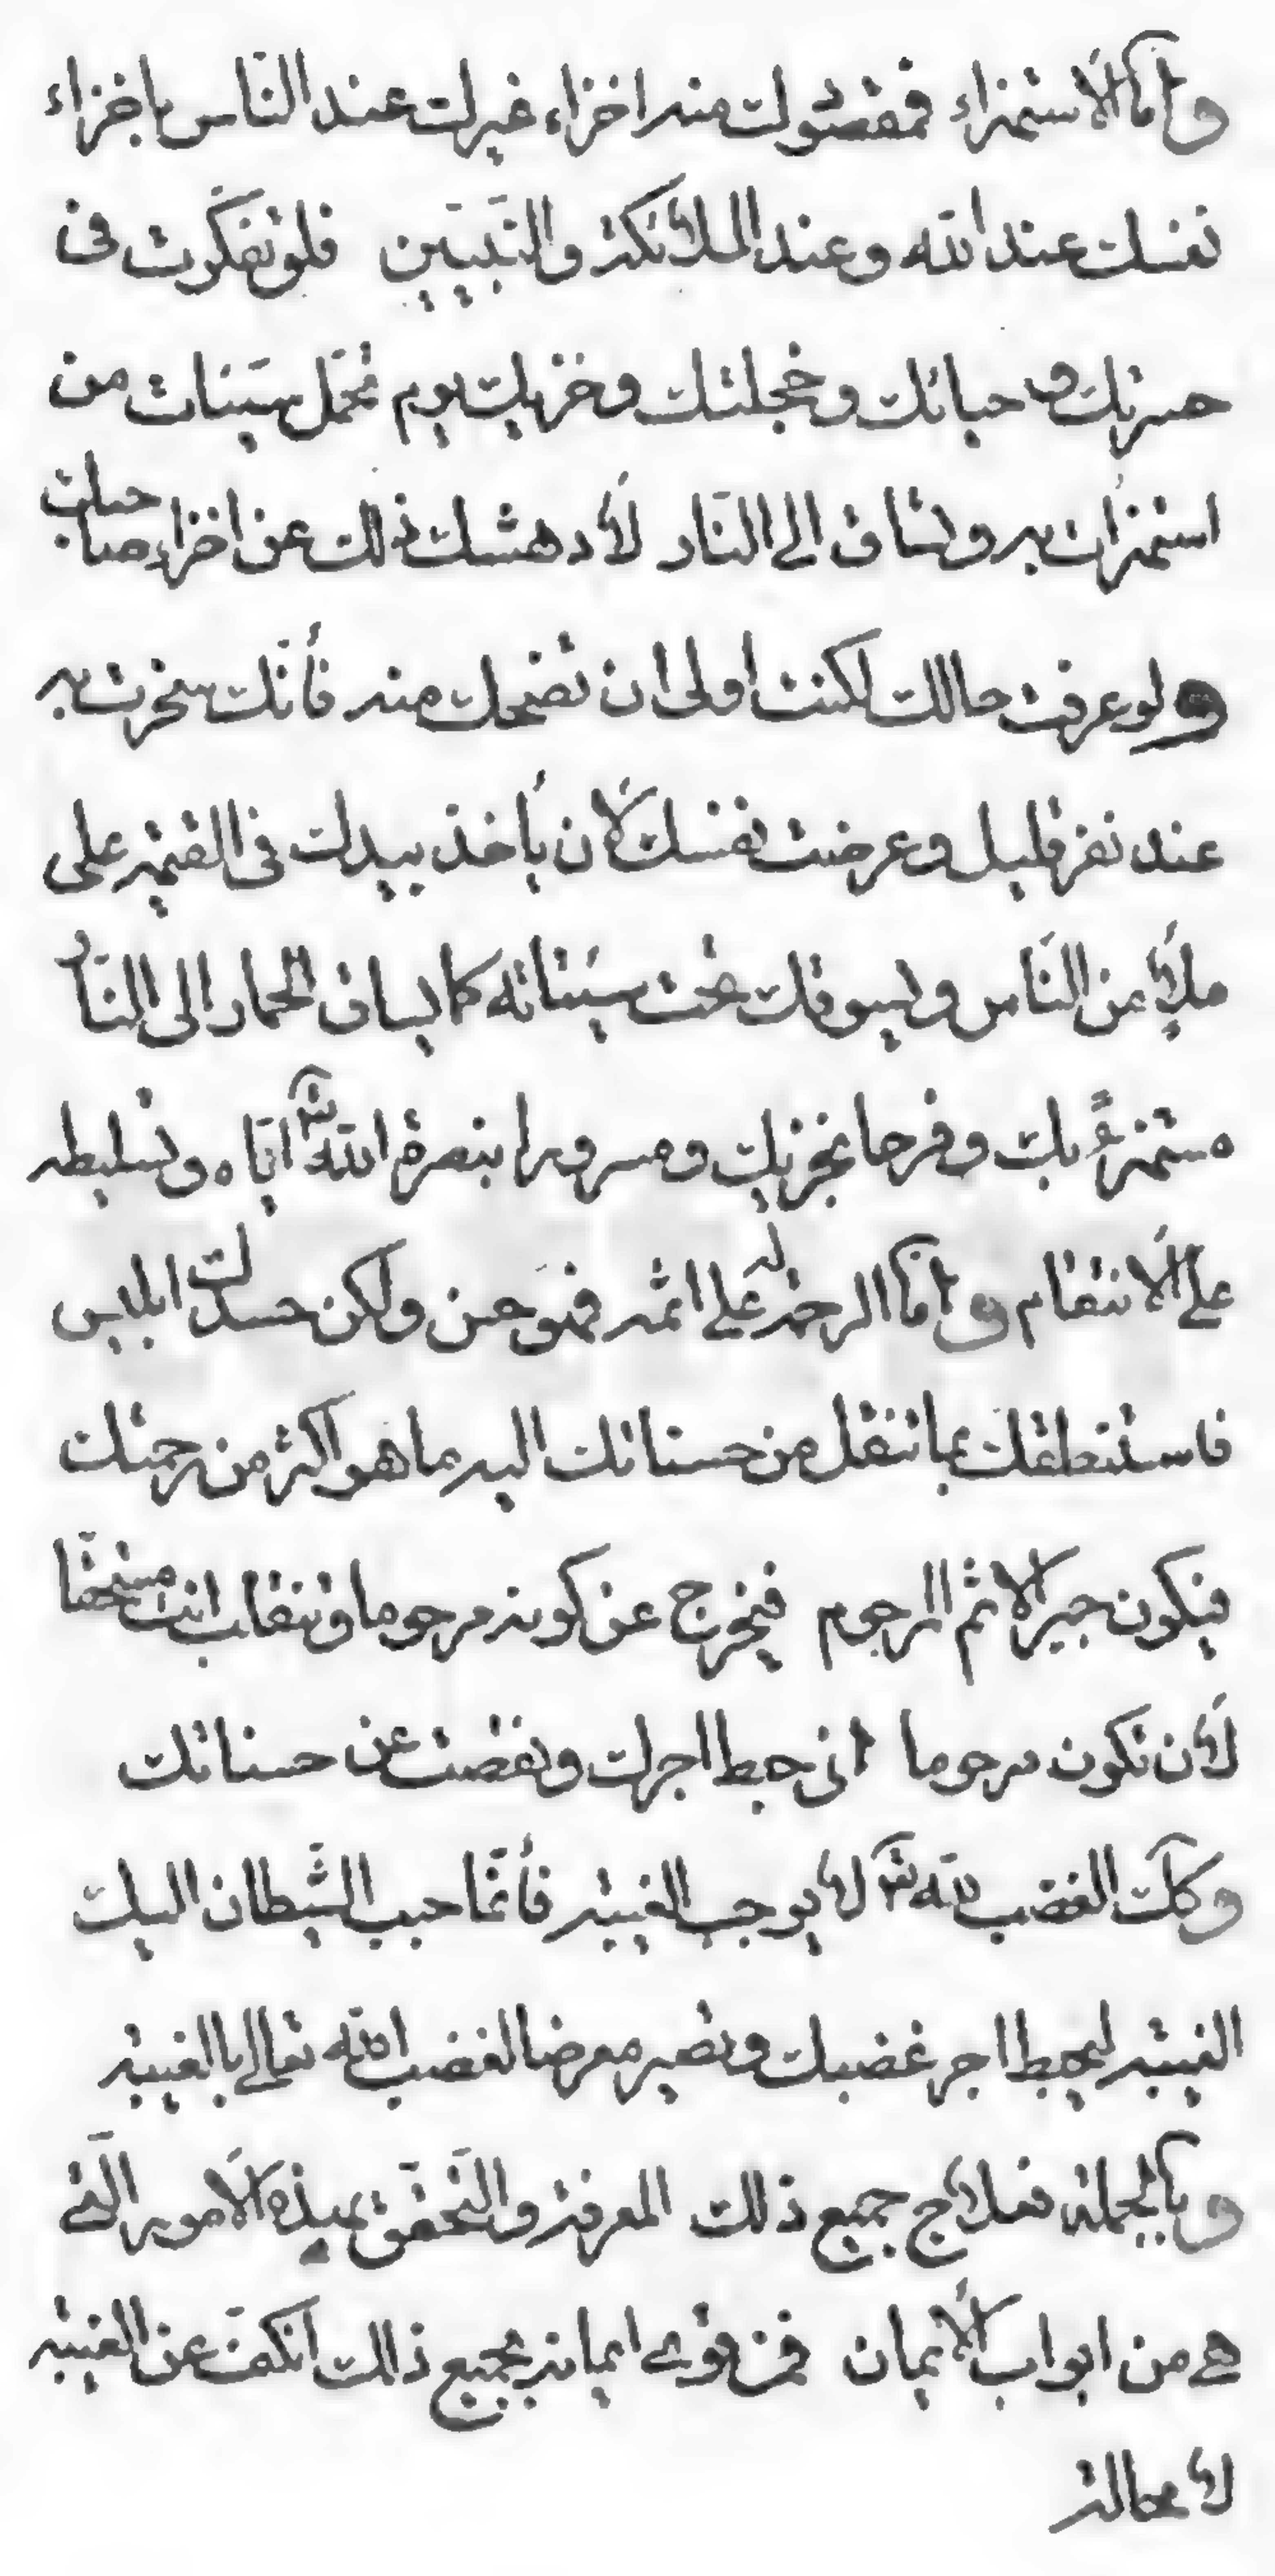 وأما الاستهزاء فمقصودك منه اخزاء غيرك عند الناس باخزاء
نفسك عند الله وعند الملائكة والنبيين فلو تفكرت في
حسرتك و حيائك و خجلتك و خزيك يوم تحمل سيئات من
استهزأت به و تساق الى النار لأدهشك ذلك عن اخزاء صاحبك
ولو عرفت حالك لكنت اولى ان تضحك منه فأنك سخرت به
عند نفر قليل و عرضت نفسك لأن يأخذ بيدك في القيمة على
ملأ من الناس و يسوقك تحت سيئاته كما يساق الحمار الى النار
مستهزءً بك و فرحا بخزيك و مسرورا بنصرة الله تعـ اياه و تسليطه
على الانتقام و أما الرحمة له على اثمه فهو حسن ولكن حسدك ابليس
فاستنطقك بما تنقل من حسناتك اليه ما هو اكثر من رحمتك
فيكون جبر الاثم المرحوم فيخرج عن كونه مرحوما و تنقلب انت مستحقا
لأن تكون مرحوما اذ حبط اجرك و نقصت من حسناتك
وكذلك الغضب لله تعـ لا يوجب الغيبة فأنما حبب الشيطان اليك
الغيبة ليحبط اجر غضبك و تصير معرضا لغضب الله تعالى بالغيبة
و بالجملة فعلاج جميع ذلك المعرفة و التحقق بهذه الامور التي
هي من ابواب الأيمان فمن قوى ايمانه بجميع ذلك انكف عن الغيبة
لا محالة